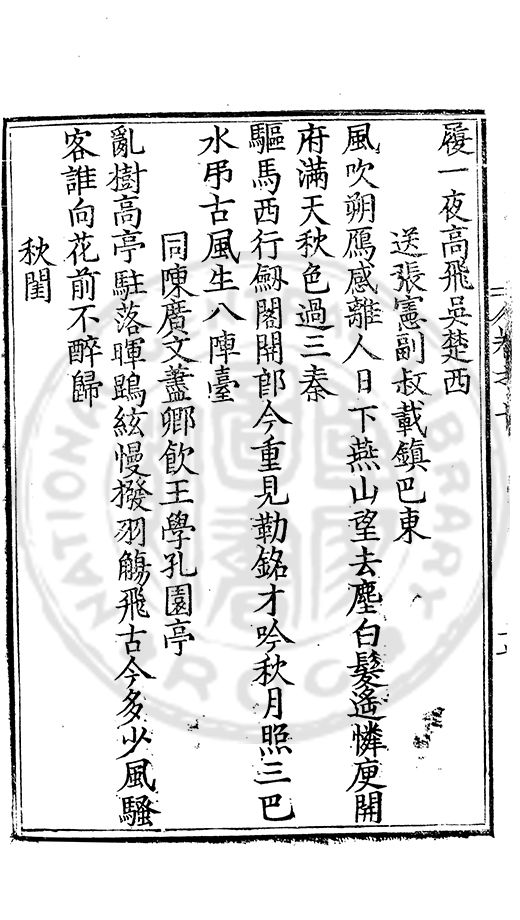 履一夜高飛吳楚西
送張憲副叔載鎮巴東
風吹朔鴈感離人日下燕山望去塵白髮遙憐庾開
府滿天秋色過三秦
驅馬西行劒閣開郎今重見勒銘才吟秋月照三巴
水弔古風生八陣臺
同陳廣文藎卿飲王學孔園亭
亂樹高亭駐落暉鵾絃慢撥羽觴飛古今多少風騷
客誰向花前不醉歸
秋閨